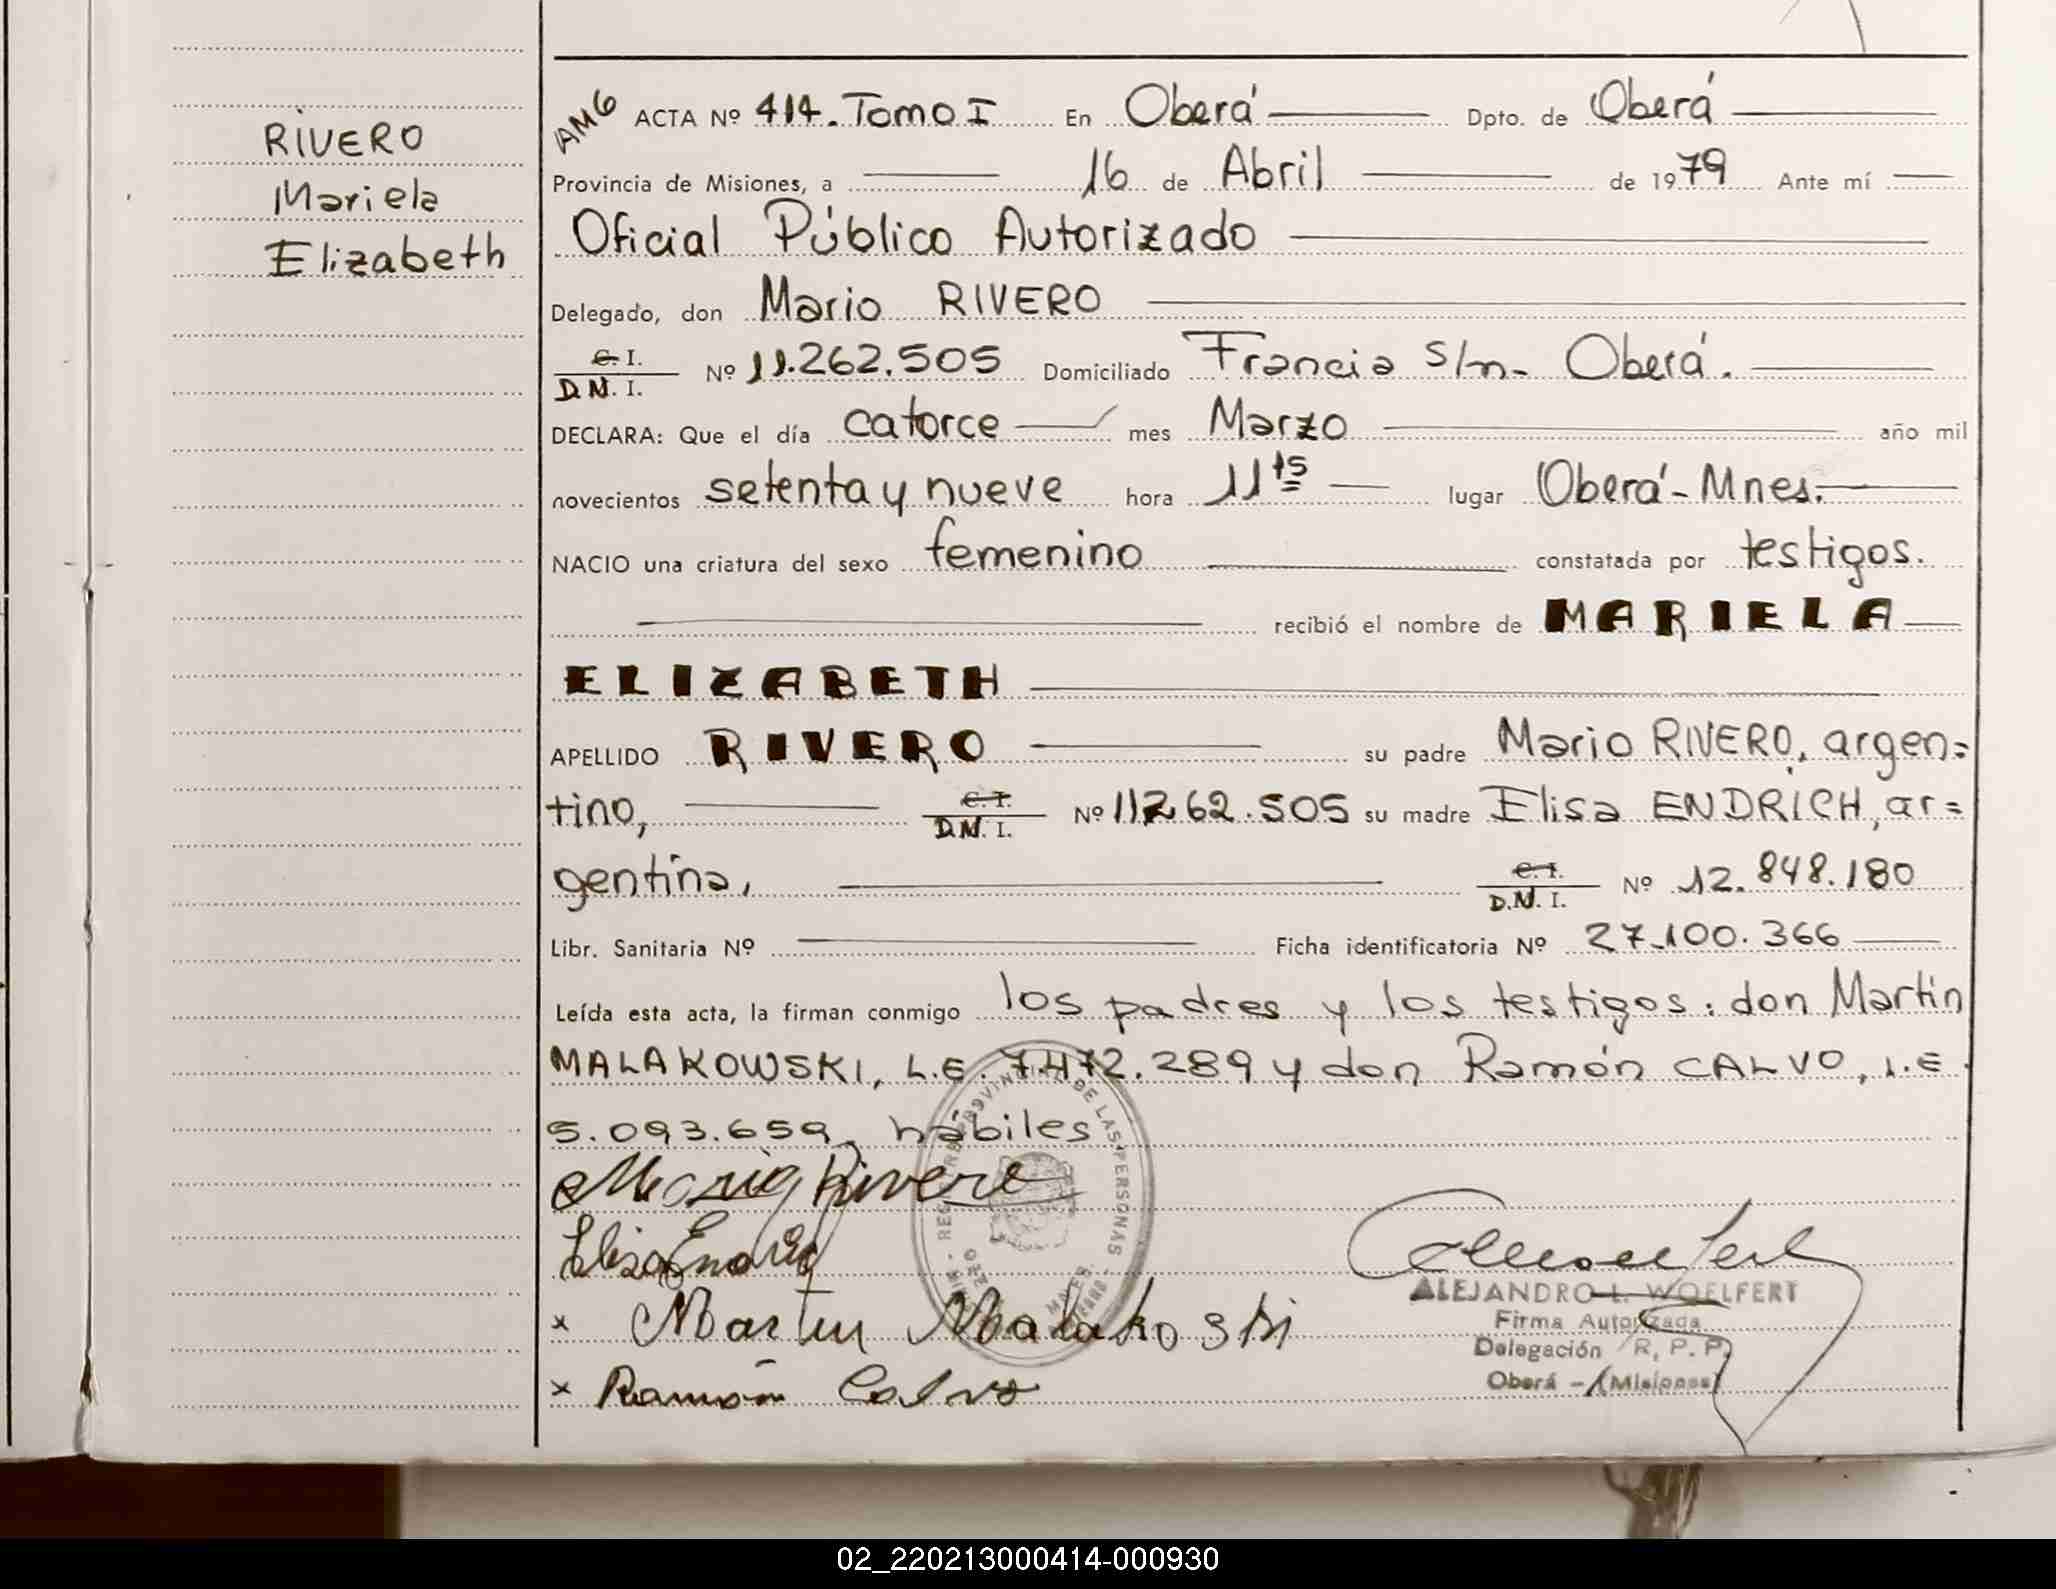 RIVERO
Mariela
Elizabeth
AMG ACTA Nº 414. Tomo I En Oberá Dpto. de Oberá
Provincia de Misiones, a 16 de Abril de 1979 Ante mí
Oficial Público Autorizado
Delegado, don Mario RIVERO
C.I. / D.N.I. Nº 11.262.505 Domiciliado Francia s/n- Oberá.
DECLARA: Que el día catorce mes Marzo año mil
novecientos setenta y nueve hora 11ts lugar Oberá-Mnes.
NACIO una criatura del sexo femenino constatada por testigos.
recibió el nombre de MARIELA
ELIZABETH
APELLIDO RIVERO su padre Mario RIVERO, argen=
tino, C.I. / D.N.I. Nº 11262.505 su madre Elisa ENDRICH, ar=
gentina, C.I. / D.N.I. Nº 12.848.180
Libr. Sanitaria Nº Ficha identificatoria Nº 27.100.366
Leída esta acta, la firman conmigo los padres y los testigos: don Martín
MALAKOWSKI, L.E. 7.472.289 y don Ramón CALVO, L.E.
5.093.659, hábiles
Mario Rivero
Elisa Endrich
x Martin Malakoski
x Ramón Calvo
DE LAS PERSONAS
ALEJANDRO L. WOELFERT
Firma Autorizada
Delegación R. P. P.
Oberá - (Misiones)
02_220213000414-000930